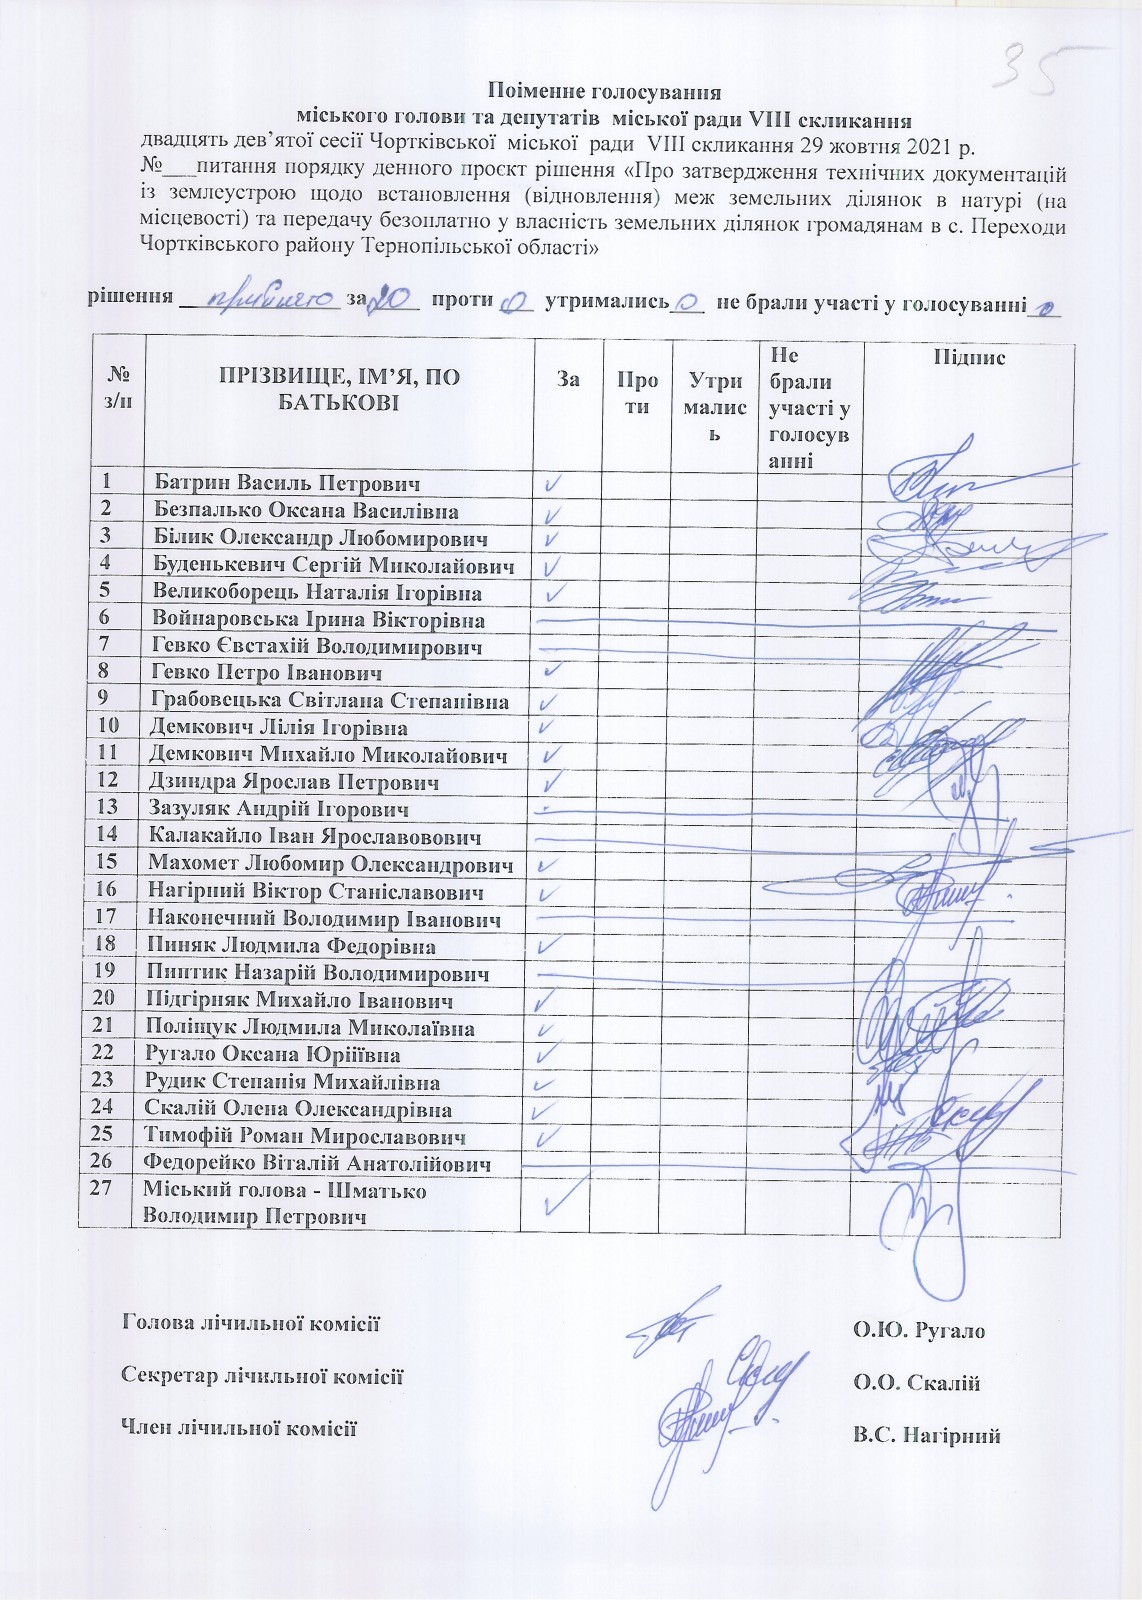 35
Поіменне голосування
міського голови та депутатів міської ради VIII скликання
двадцять дев’ятої сесії Чортківської міської ради VIII скликання 29 жовтня 2021 р.
№___питання порядку денного проєкт рішення «Про затвердження технічних документацій
із землеустрою щодо встановлення (відновлення) меж земельних ділянок в натурі (на
місцевості) та передачу безоплатно у власність земельних ділянок громадянам в с. Переходи
Чортківського району Тернопільської області»
рішення прийнято за 20 проти 0 утримались 0 не брали участі у голосуванні 0
№ з/п ПРІЗВИЩЕ, ІМ’Я, ПО БАТЬКОВІ За Про ти Утри малис ь Не брали участі у голосув анні Підпис
1 Батрин Василь Петрович ✓
2 Безпалько Оксана Василівна ✓
3 Білик Олександр Любомирович ✓
4 Буденькевич Сергій Миколайович ✓
5 Великоборець Наталія Ігорівна ✓
6 Войнаровська Ірина Вікторівна
7 Гевко Євстахій Володимирович
8 Гевко Петро Іванович ✓
9 Грабовецька Світлана Степанівна ✓
10 Демкович Лілія Ігорівна ✓
11 Демкович Михайло Миколайович ✓
12 Дзиндра Ярослав Петрович ✓
13 Зазуляк Андрій Ігорович
14 Калакайло Іван Ярославовович
15 Махомет Любомир Олександрович ✓
16 Нагірний Віктор Станіславович ✓
17 Наконечний Володимир Іванович
18 Пиняк Людмила Федорівна ✓
19 Пинтик Назарій Володимирович
20 Підгірняк Михайло Іванович ✓
21 Поліщук Людмила Миколаївна ✓
22 Ругало Оксана Юріїївна ✓
23 Рудик Степанія Михайлівна ✓
24 Скалій Олена Олександрівна ✓
25 Тимофій Роман Мирославович ✓
26 Федорейко Віталій Анатолійович
27 Міський голова - Шматько ✓
Володимир Петрович
Голова лічильної комісії О.Ю. Ругало
Секретар лічильної комісії О.О. Скалій
Член лічильної комісії В.С. Нагірний